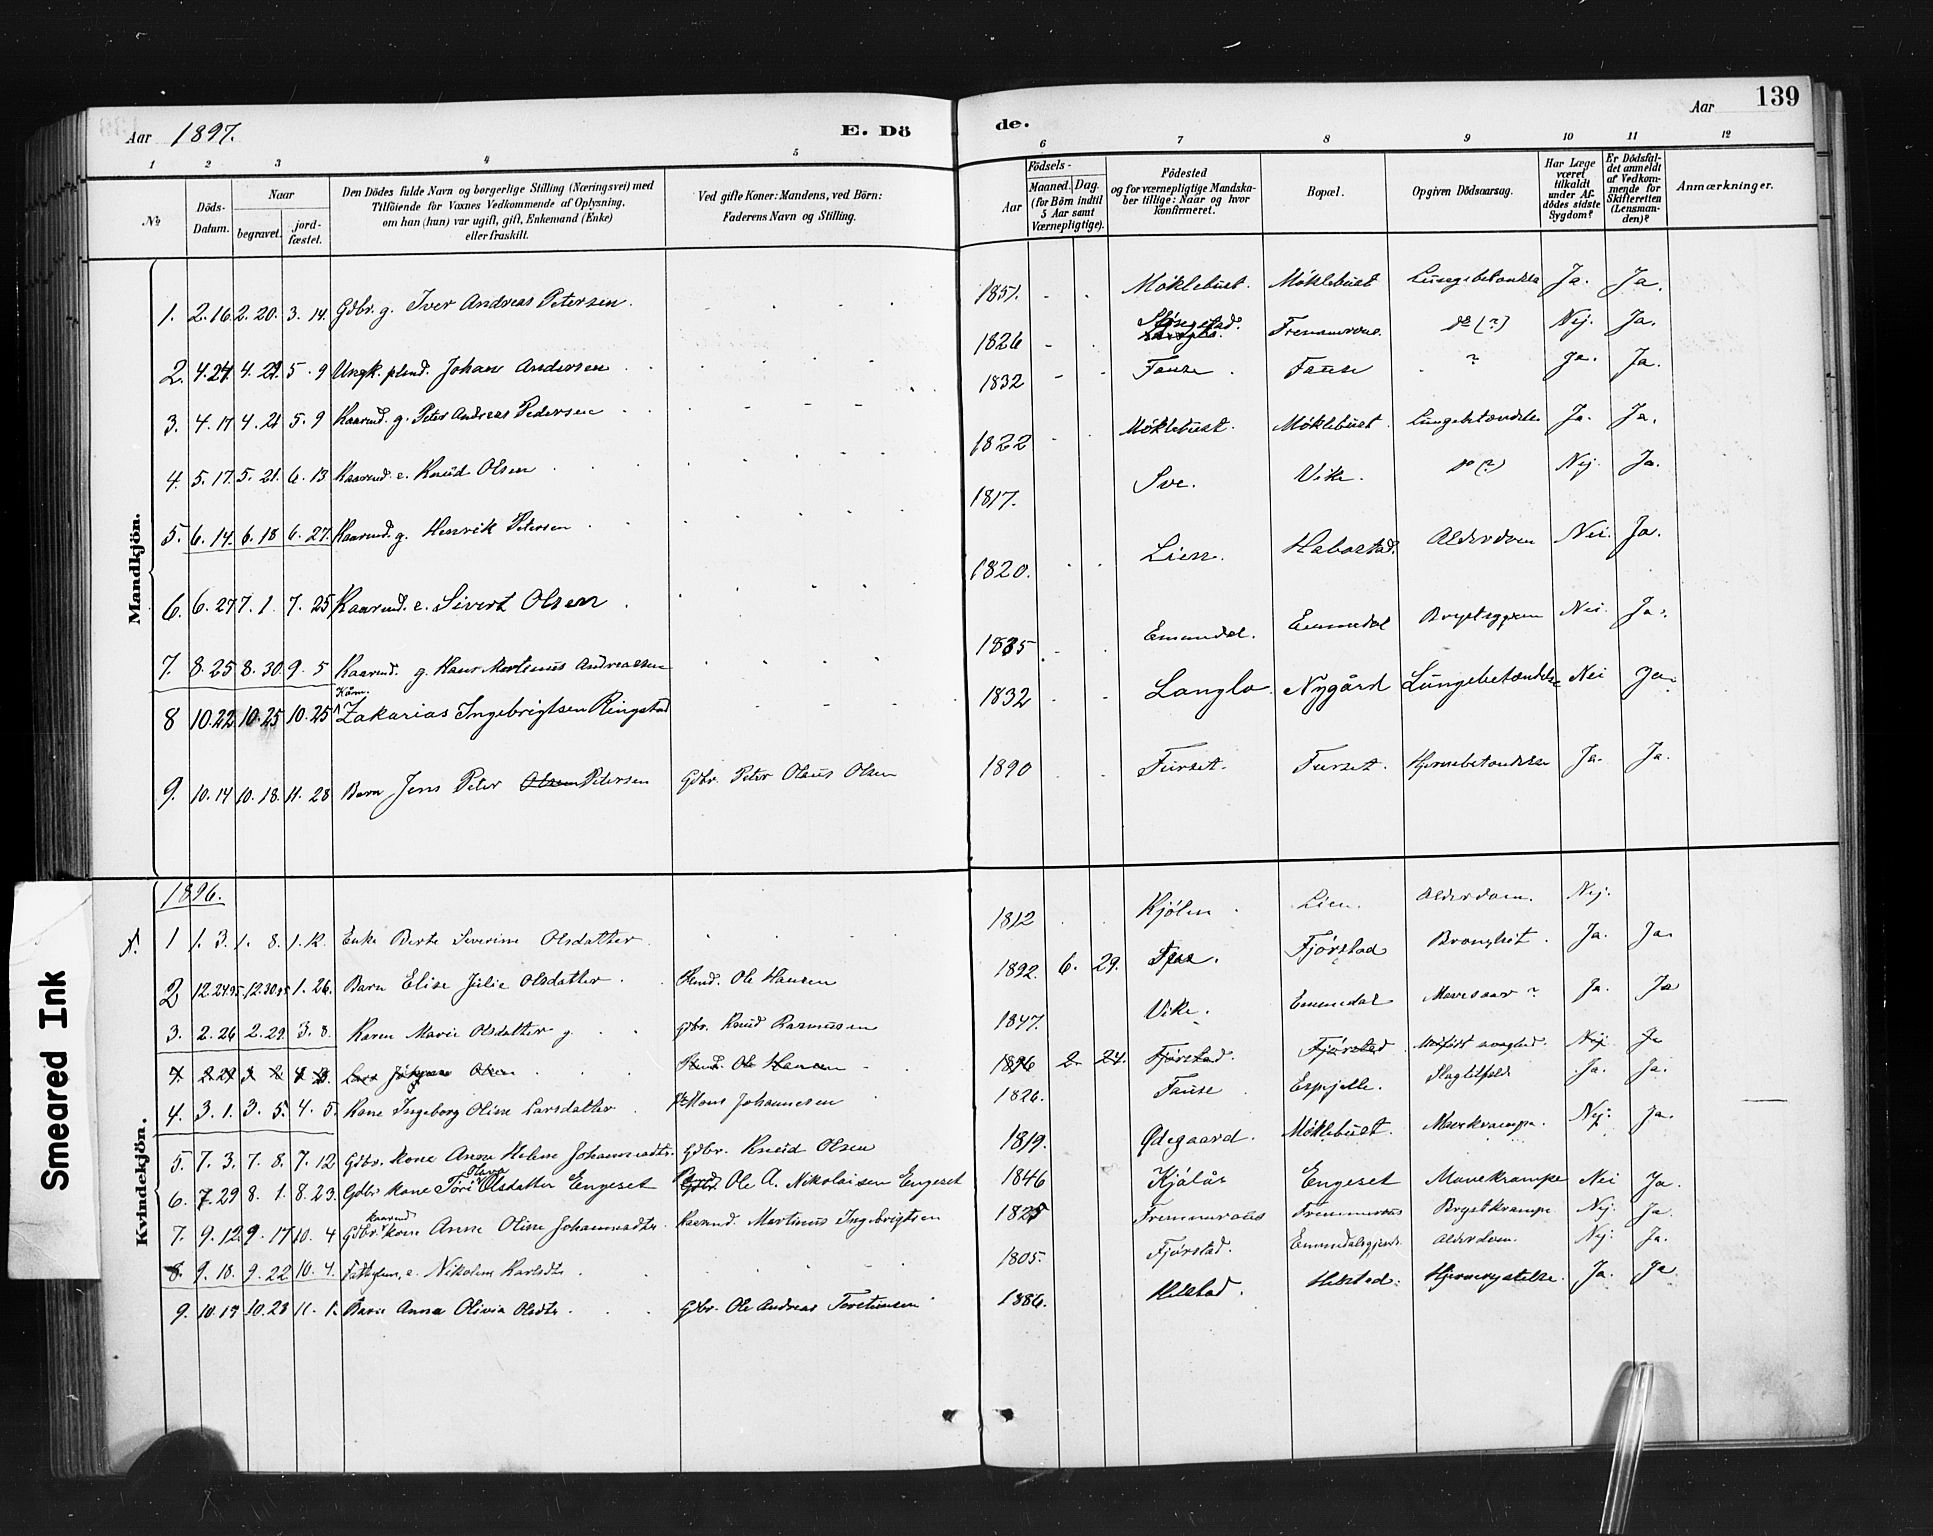 Aar 1897. E. Dö de. Aar 139
1 2 3 4 5 6 7 8 9 10 11 12
№ Döds-Datum. Naar begravet. jordfæstet. Den Dödes fulde Navn og borgerlige Stilling (Næringsvei) med Tilföiende for Voxnes Vedkommende af Oplysning, om han (hun) var ugift, gift, Enkemand (Enke) eller fraskilt. Ved gifte Koner: Mandens, ved Börn: Faderens Navn og Stilling. Aar Födsels- Maaned. Dag. (for Börn indtil 5 Aar samt Værnepligtige). Födested og for værnepligtige Mandskaber tillige: Naar og hvor konfirmeret. Bopæl. Opgiven Dödsaarsag. Har Læge været tilkaldt under Afdödes sidste Sygdom? Er Dödsfaldet anmeldt af Vedkommende for Skifteretten (Lensmanden)? Anmærkninger.
Mandkjön.
1. 2.16 2.20. 3.14. Gdbr. g. Iver Andreas Petersen. 1851. Möklebust. Möklebust Lungebetændelse Ja. Ja.
2. 4.24. 4.29. 5.9 Ungk. Johan Andersen 1826 Fremmerous. do (?) Nej. Ja.
3. 4.17 4.21 5.9 Kaarmd. g. Peter Andreas Pedersen 1832 Fause. Fause ? Ja. Ja.
4. 5.17. 5.21. 6.13. Kaarmd. e. Knud Olsen 1822 Möklebust. Möklebust. Lungebetændelse Ja. Ja.
5. 6.14. 6.18 6.27. Kaarmd. g. Henrik Petersen 1817. Sve. Vike. do (?) Nej. Ja.
6. 6.27 7.1. 7.25 Kaarmd. e. Sivert Olsen 1820. Lien. Habostad. Alderdom Nei. Ja.
7. 8.25 8.30. 9.5 Kaarmd. g. Hans Martinus Andreassen 1835 Emundal. Emmedal Brystsygdom Nei. Ja.
8 10.22 10.25 10.25 Kårm. Zakarias Ingebrigtsen Ringstad 1832 Langlo. Nygård Lungebetændelse Nei Ja.
9. 10.14 10.18. 11.28 Barn Jens Peter Olsen Petersen Gdbr. Peter Olaus Olsen 1890 Furset. Furset. Hjernebetændelse Ja. Ja.
Kvindekjön.
1896.
1 1.3. 1.8. 1.12. Enke Berte Severine Olsdatter. 1812 Kjölen. Lien. Alderdom. Nej.
2 12.24.95. 12.30.95. 1.26. Barn Elise Julie Olsdatter. Ole Hansen 1892. 6. 29. Fjörstad Bronchit. Ja. Ja.
3. 2.26 2.29. 3.8. Karen Marie Olsdatter g. Gdbr. Knud Rasmussen 1847. Vike. Emmedal Mavesaar? Ja. Ja
4. 2.24 Olsen Ole Hansen 1896 2. 24. Fjörstad. Fjörstad Nej. Ja
4. 3.1. 3.5. 4.5. Kone Ingeborg Oline Larsdatter. Mons Johannesen 1826. Fause. Espjelle. Slagtilfælde Ja. Ja.
5. 7.3. 7.8. 7.12 Gdbr. kone Anne Helene Johannesdtr. Gdbr. Knud Olsen 1819. Ödegaard. Möklebust. Mavekrampe. Nej. Ja.
6. 7.29 8.1. 8.23. Gdbr kone Olava Olsdatter Engeset Ole A. Nikolaisen Engeset 1846 Kjölås Engeset Mavekrampe Nei Ja.
7. 9.12. 9.17 10.4 Gdbr. Kaarmd kone Anne Oline Johannesdtr. Kaarmd. Martinus Ingebrigtsen 1825 Fremmerous Fremmerous Brystkrampe Nej. Ja.
8. 9.18. 9.22 10.4. e. Nikoline Karlsdtr. 1805. Fjörstad. Emmdalsgjerde. Alderdom. Nej. Ja.
9. 10.17 10.23 11.1. Barn Anna Olivia Olsdtr. Gdbr. Ole Andreas Torstensen 1886. Helstad. Helstad. Hjernerystelse. Ja. Ja
Smeared Ink